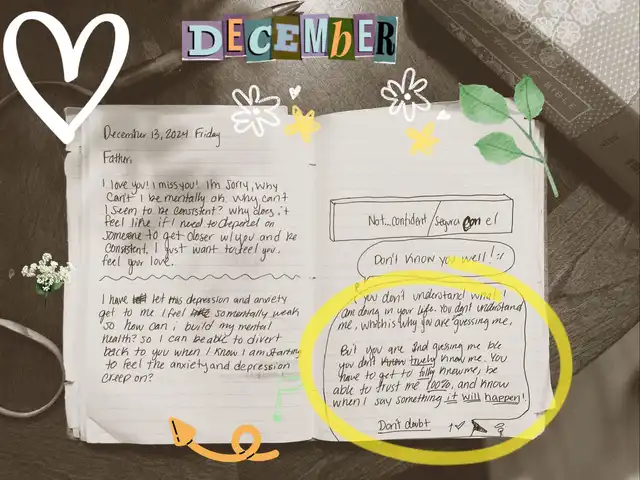 DECEMBER
December 13, 2024 Friday
Father,
I love you! I miss you! I'm sorry, why
can't I be mentally ok. Why can't
I seem to be consistent? Why does it
feel like if I need to depend on
someone to get closer w/ you and be
consistent. I just want to feel you,
feel your love.
I have let this depression and anxiety
get to me I feel so mentally weak
so how can i build my mental
health? so I can be able to divert
back to you when I know I am starting
to feel the anxiety and depression
creep on?
Not...confident / segura con el
Don't know you well! :(
you don't understand what I
am doing in your life. You don't understand
me, which is why you are guessing me.
But you are 2nd guessing me b/c
you don't truely know me. You
have to get to fully know me, be
able to trust me 100%, and know
when I say something it will happen!
Don't doubt